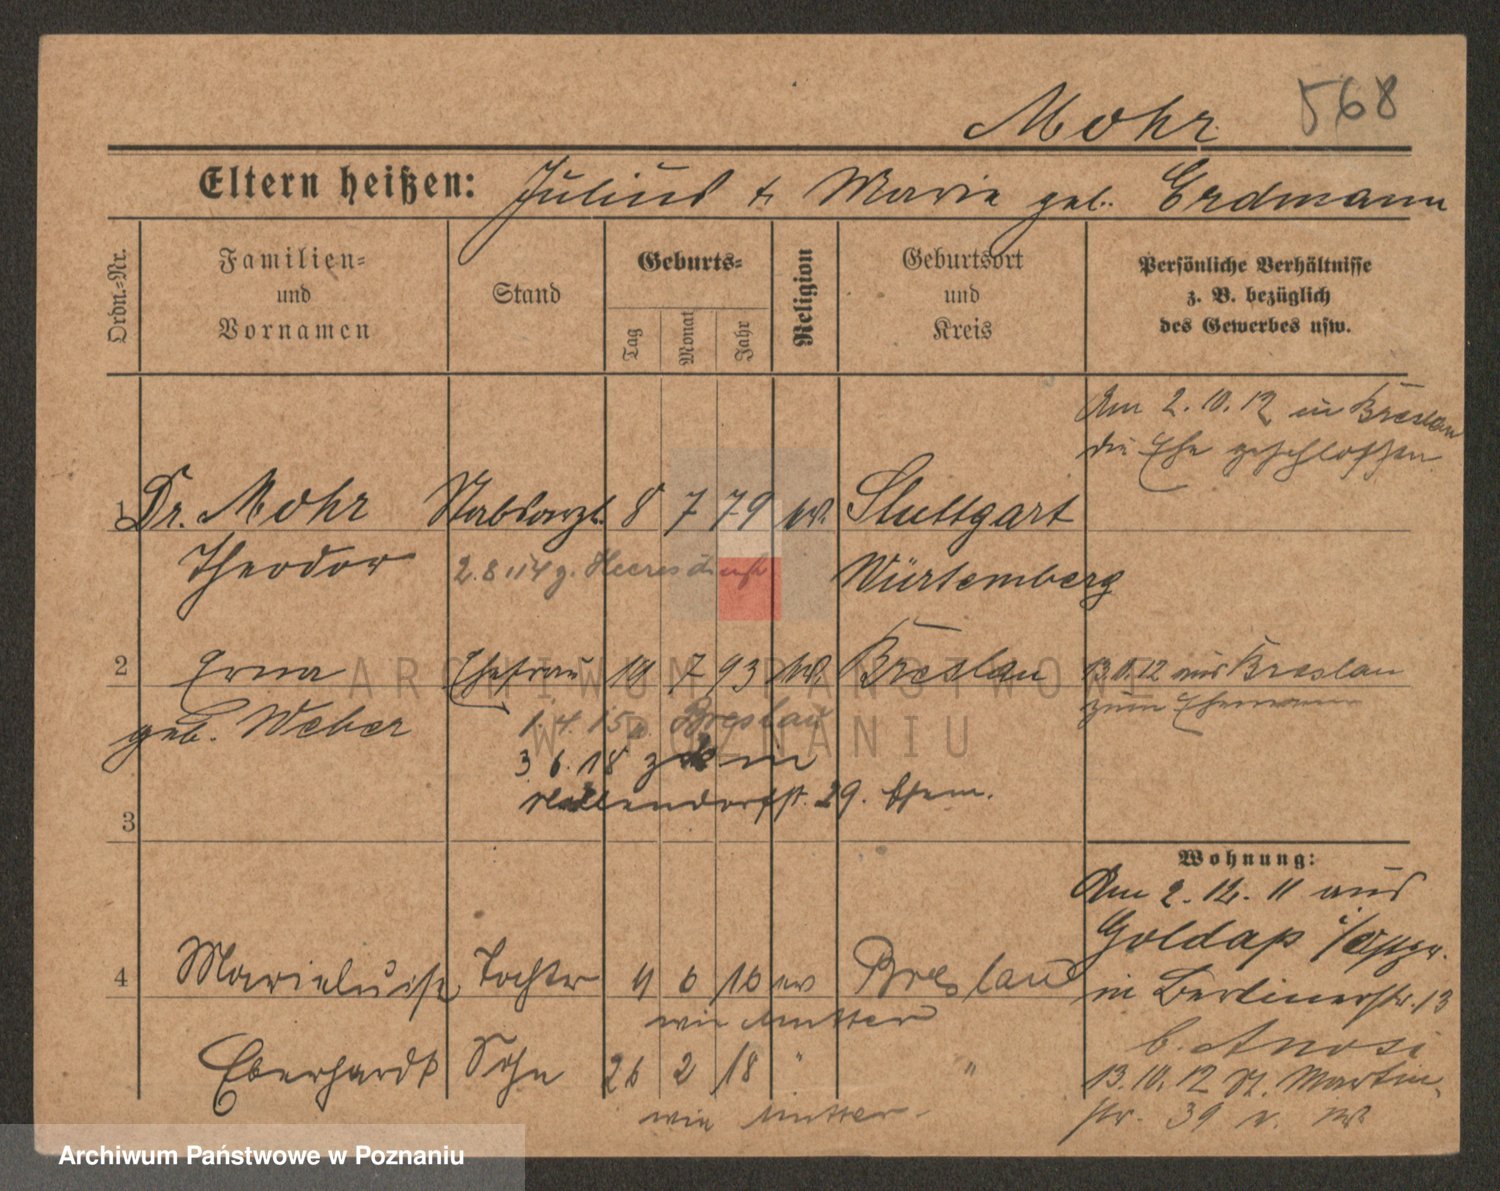 Mohr 568
Eltern heißen: Julius & Marie geb. Erdmann
Ordn.-Nr.
Familien-
und
Vornamen
Stand
Geburts-
Tag
Monat
Jahr
Religion
Geburtsort
und
Kreis
Persönliche Verhältnisse
z. B. bezüglich
des Gewerbes usw.
Am 2.10.12 in Breslau
die Ehe geschlossen
1 Dr. Mohr Stabsarzt 8 7 79 Stuttgart
Theodor 2.8.14 z. Heeresdienst Würtemberg
2 Erna Ehefrau 19 7 93 Breslau 13.10.12 aus Breslau
geb. Weber 1.4.15 n. Breslau zum Ehemann
3 6.18 zk in
29. Ehem.
3
Wohnung:
Am 2.12.11 aus
Goldap i/Ostpr.
4 Marieluise Tochter 4 6 16 ev Breslau in Berlinerstr. 13
wie Mutter
Eberhardt Sohn 26 2 18 " "
wie Mutter
13.10.12 St. Martin-
str. 39
ARCHIWUM PAŃSTWOWE
W POZNANIU
Archiwum Państwowe w Poznaniu